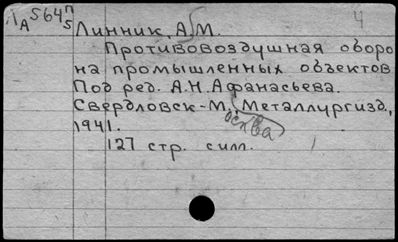 564 п
А 5
4
Линник, А. М.
Противовоздушная оборо
на промышленных объектов
Под ред. А.Н. Афанасьева.
Свердловск-М., Металлургизд.,
осква
1941.
127 стр. силл.